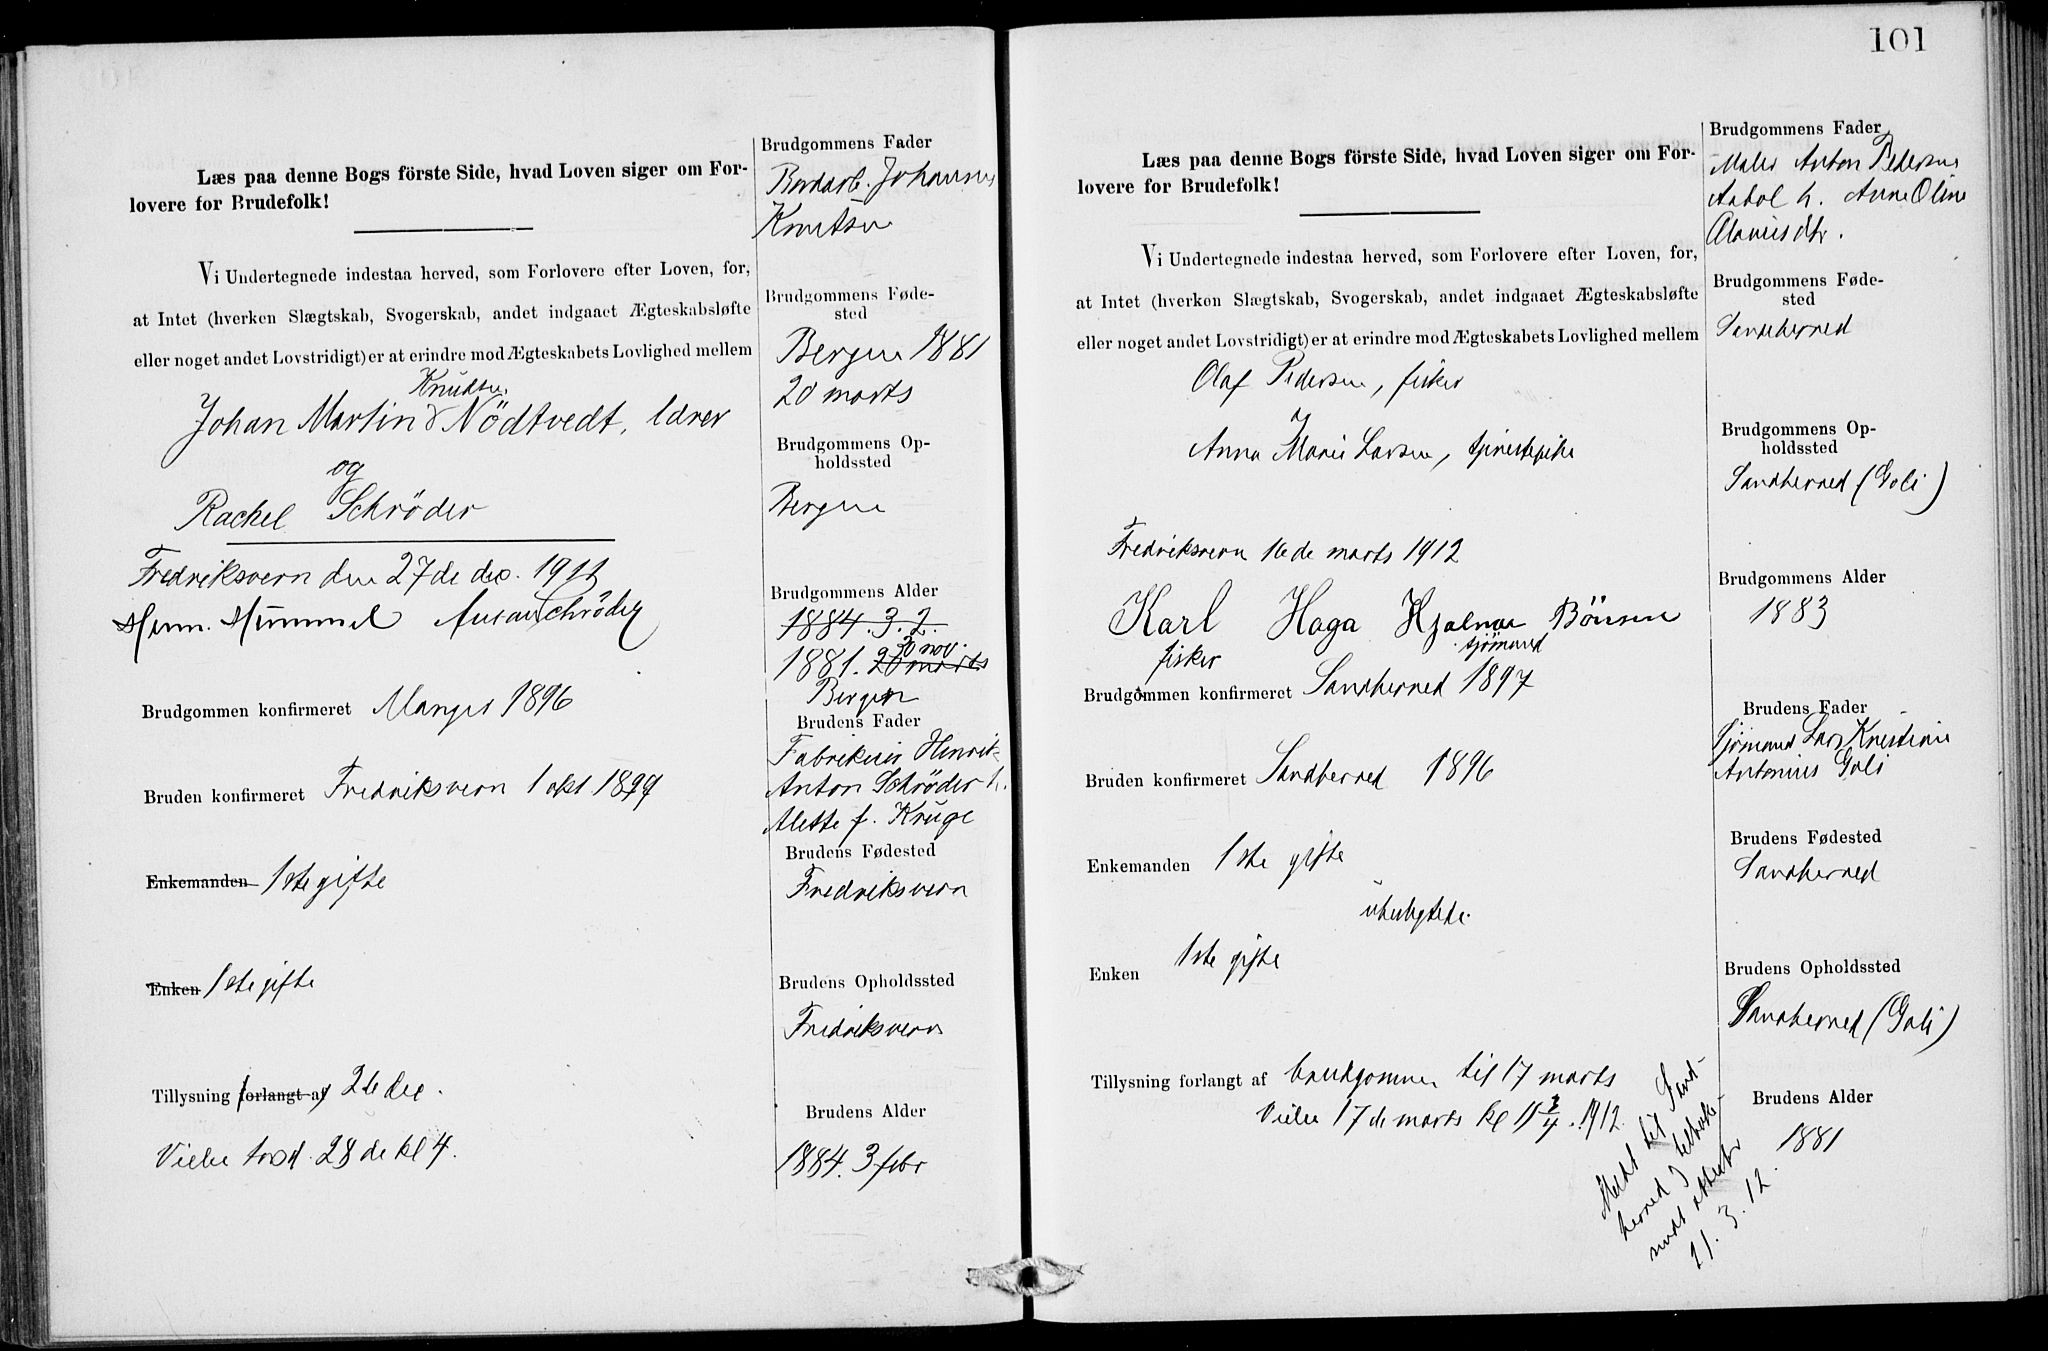 Læs paa denne Bogs förste Side, hvad Loven siger om For-
lovere for Brudefolk!
Vi Undertegnede indestaa herved, som Forlovere efter Loven, for,
at Intet (hverken Slægtskab, Svogerskab, andet indgaaet Ægteskabsløfte
eller noget andet Lovstridigt) er at erindre mod Ægteskabets Lovlighed mellem
Knudsen
Johan Martin Nödtvedt, lærer
og
Rachel Schröder
Fredriksvern den 27de dec. 1911
Herm. Hümmel Anton Schröder
Brudgommen konfirmeret Manger 1896
Bruden konfirmeret Fredriksvern 1 okt 1899
Enkemanden 1ste gifte
Enken 1ste gifte
Tillysning forlangt af 26 dec.
Vielse torsd. 28de kl 4.
Brudgommens Fader
Johannes
Knutsen
Brudgommens Føde-
sted
Bergen 1881
20 marts
Brudgommens Op-
holdssted
Bergen
Brudgommens Alder
1884. 3. 2.
30 nov.
1881. 20 marts
Bergen
Brudens Fader
Fabrikeier Henrik
Anton Schröder h.
Alette f. Kruge
Brudens Fødested
Fredriksvern
Brudens Opholdssted
Fredriksvern
Brudens Alder
1884. 3 febr
101
Læs paa denne Bogs förste Side, hvad Loven siger om For-
lovere for Brudefolk!
Vi Undertegnede indestaa herved, som Forlovere efter Loven, for,
at Intet (hverken Slægtskab, Svogerskab, andet indgaaet Ægteskabsløfte
eller noget andet Lovstridigt) er at erindre mod Ægteskabets Lovlighed mellem
Olaf Pedersen, fisker
Anna Marie Larsen, tjenestepike
Fredriksvern 16de marts 1912
Karl Haga Hjalmar Bönsen
fisker sjømand
Brudgommen konfirmeret Sandherred 1897
Bruden konfirmeret Sandherred 1896
Enkemanden 1ste gifte
ubeslegtede.
Enken 1ste gifte
Tillysning forlangt af brudgommen til 17 marts
Vielse 17de marts kl 11 3/4. 1912.
Meldt til Sand-
herred
21. 3. 12.
Brudgommens Fader
Maler Anton Pedersen
h. Anne Oline
Brudgommens Føde-
sted
Sandeherred
Brudgommens Op-
holdssted
Sandherred (Goli)
Brudgommens Alder
1883
Brudens Fader
Sjømand Lars Kristian
Antonius Goli
Brudens Fødested
Sandherred
Brudens Opholdssted
Sandherred (Goli)
Brudens Alder
1881